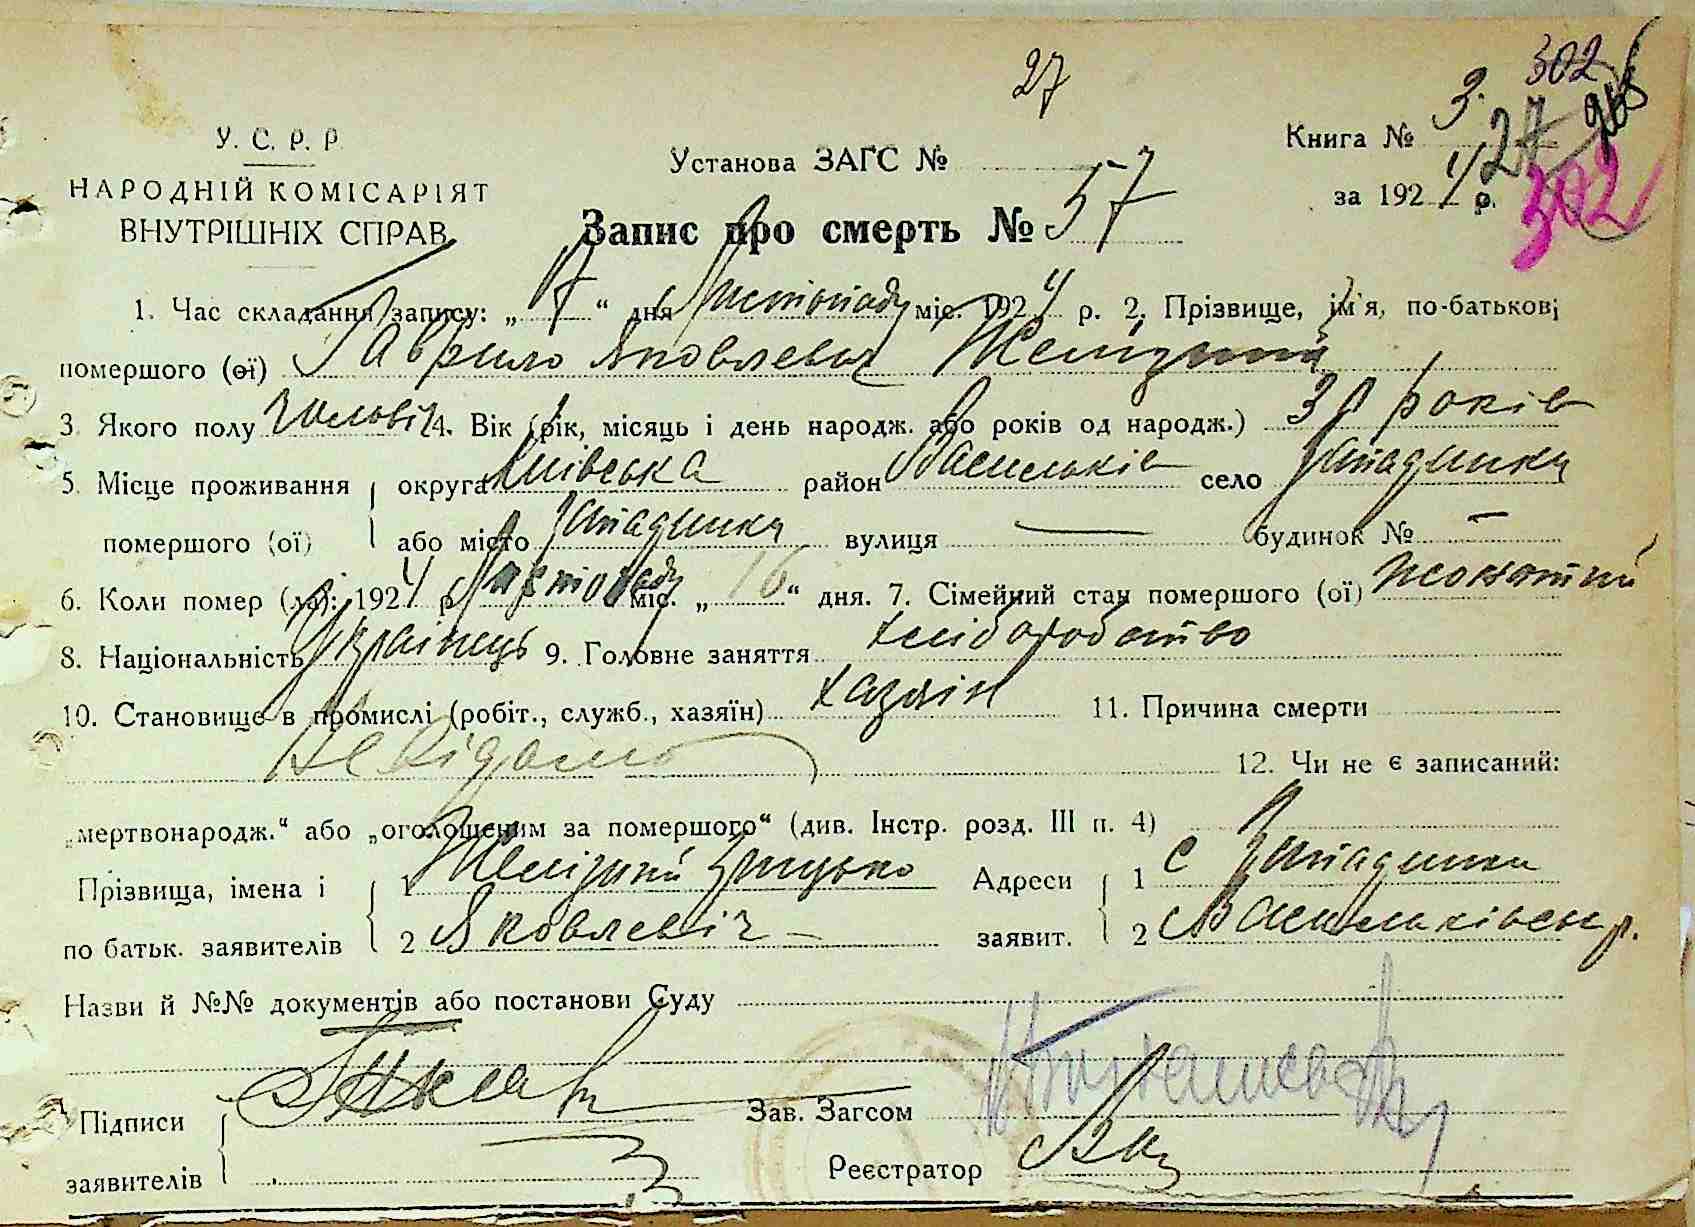 27
302
У. С. Р. Р.
НАРОДНІЙ КОМІСАРІЯТ
ВНУТРІШНІХ СПРАВ
Установа ЗАГС №
Книга № 3. 27
за 1924 р.
302
Запис про смерть № 57
1. Час складання запису: „17“ дня Листопаду міс. 1924 р. 2. Прізвище, ім'я, по-батькові
помершого (ої) Гаврило Яковлевич
3. Якого полу чоловіч 4. Вік (рік, місяць і день народж. або років од народж.) 30 років
5. Місце проживання округа Київська район Васильків село
помершого (ої) або місто вулиця — будинок № —
6. Коли помер (ла): 1924 р. Листопаду міс. „16“ дня. 7. Сімейний стан помершого (ої) жонатий
8. Національність Українець 9. Головне заняття хліборобство
10. Становище в промислі (робіт., служб., хазяїн) хазяїн 11. Причина смерти
Невідомо 12. Чи не є записаний:
„мертвонародж.“ або „оголошеним за помершого“ (див. Інстр. розд. III п. 4)
Прізвища, імена і 1 Грицько Адреси 1 с
по батьк. заявителів 2 Яковлевіч – заявит. 2 Васильківськ р.
Назви й №№ документів або постанови Суду
Підписи Зав. Загсом
заявителів Реєстратор